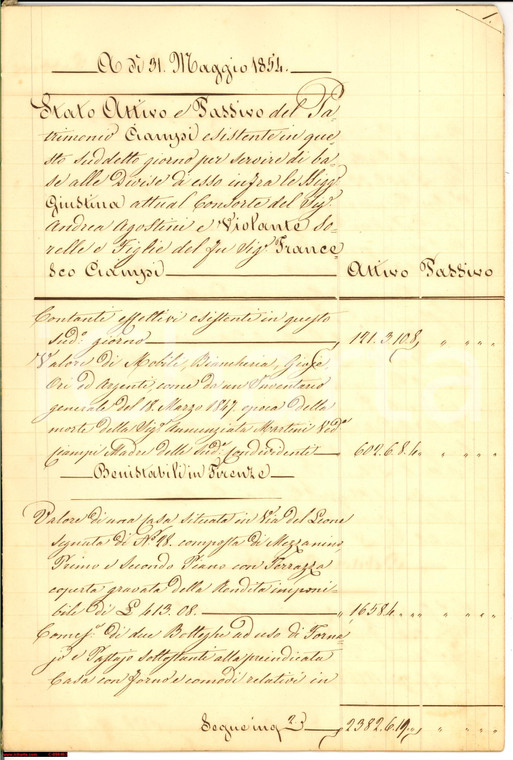 1.
A dì 31. Maggio 1854.
Stato Attivo e Passivo del Pa-
trimonio Ciampi esistente in que-
sto suddetto giorno per servire di ba-
se alle Divise di esso infra le Sigg.
Giustina attual Consorte del Sig.
Andrea Agostini e Violante So-
relle e Figlie del fu Sig. France-
sco Ciampi Attivo Passivo
Contanti effettivi esistenti in questo
sud.o giorno 191.3.108
Valore di Mobili, Biancheria, Gioje,
Ori ed Argenti come da un Inventario
generale del 18. Marzo 1847. epoca della
morte della Sig.a Annunziata Martini Ved.a
Ciampi Madre delle sud.e Condividenti 602.6.8.4
Beni stabili in Firenze
Valore di una Casa situata in Via del Leone
segnata di N.o 98. composta di Mezzanino,
Primo e Secondo Piano con Terrazza
coperta gravata della Rendita imponi-
bile di L. 413.08. 1658.4
Come s.a di due Botteghe ad uso di Forna-
jo e Pastajo sottostanti alla preindicata
Casa con forno e comodi relativi in
Segue in q.2 2382.6.19